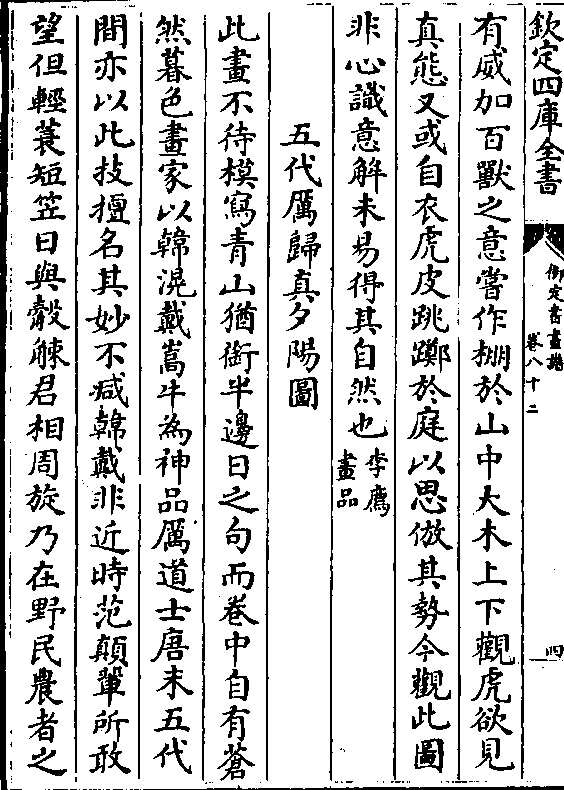 欽定四庫全書
御定書畫譜
卷八十二
四
有威加百獸之意嘗作棚於山中大木上下觀虎欲見
真態又或自衣虎皮跳躑於庭以思倣其勢今觀此圖
非心識意解未易得其自然也李廌
畫品
五代厲歸真夕陽圖
此畫不待模寫青山猶銜半邊日之句而卷中自有蒼
然暮色畫家以韓滉戴嵩牛為神品厲道士唐末五代
間亦以此技擅名其妙不减韓戴非近時范顛輩所敢
望但輕蓑短笠日與觳觫君相周旋乃在野民農者之